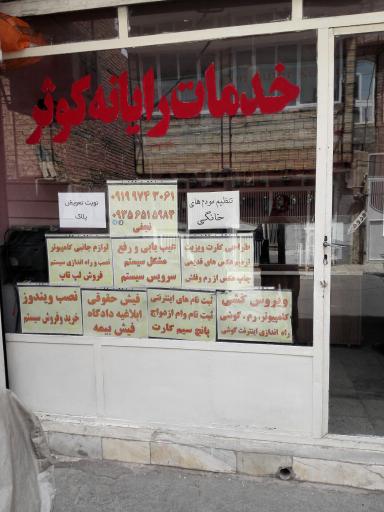 خدمات رایانه کوثر
۰۹۱۹ ۹۷۴ ۳۰۶۱
۰۹۳۵ ۶۵۱ ۵۹۸۳
نوبت تعویض
پلاک
تنظیم مودم های
خانگی
طراحی کارت ویزیت
ترمیم عکس های قدیمی
چاپ عکس از رم وفلش
تایپ یابی و رفع
مشکل سیستم
سرویس سیستم
لوازم جانبی کامپیوتر
نصب و راه اندازی سیستم
فروش لپ تاپ
ویروس کشی
کامپیوتر، رم ، گوشی
راه اندازی اینترنت گوشی
ثبت نام های اینترنتی
ثبت نام وام ازدواج
پانچ سیم کارت
فیش حقوقی
ابلاغیه دادگاه
فیش بیمه
نصب ویندوز
خرید وفروش سیستم